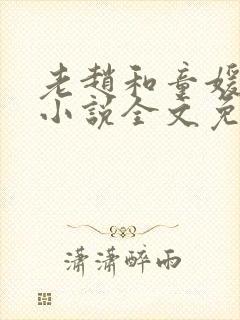 老趙和童媛
小說全文免
瀟瀟醉雨